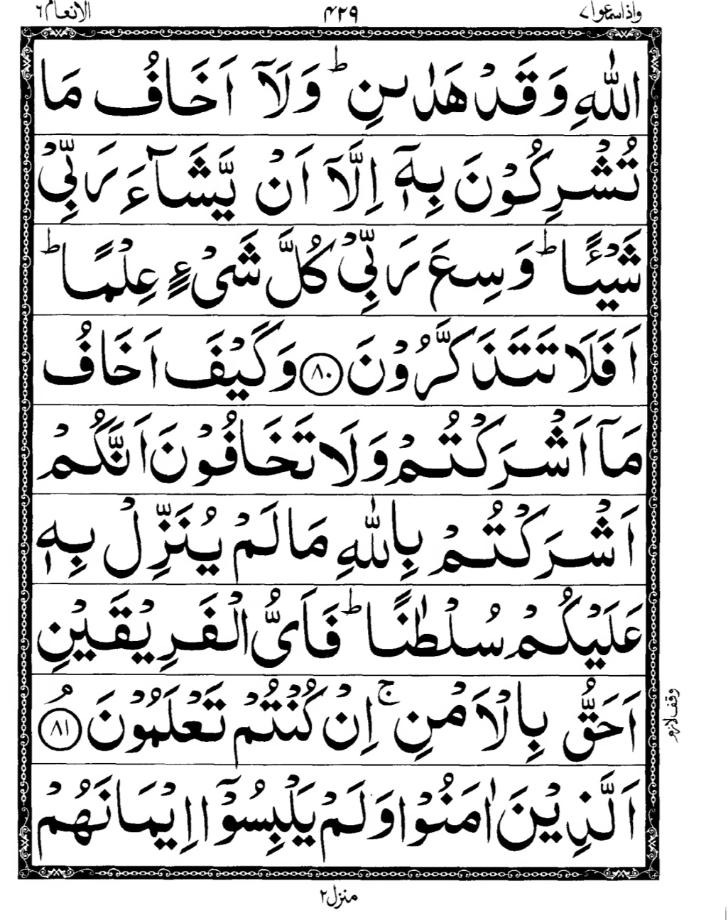 واذاسمعوا ۷ ۴۲۹ الانعام ۶
اللّٰهِ وَقَدْ هَدٰىنِ ؕ وَلَاۤ اَخَافُ مَا
تُشْرِكُوْنَ بِهٖۤ اِلَّاۤ اَنْ يَّشَآءَ رَبِّيْ
شَيْـًٔا ؕ وَسِعَ رَبِّيْ كُلَّ شَيْءٍ عِلْمًا ؕ
اَفَلَا تَتَذَكَّرُوْنَ ﴿۸۰﴾ وَكَيْفَ اَخَافُ
مَاۤ اَشْرَكْتُمْ وَلَا تَخَافُوْنَ اَنَّكُمْ
اَشْرَكْتُمْ بِاللّٰهِ مَا لَمْ يُنَزِّلْ بِهٖ
عَلَيْكُمْ سُلْطٰنًا ؕ فَاَيُّ الْفَرِيْقَيْنِ
اَحَقُّ بِالْاَمْنِ ۚ اِنْ كُنْتُمْ تَعْلَمُوْنَ ۘ ﴿۸۱﴾
وقف لازم
اَلَّذِيْنَ اٰمَنُوْا وَلَمْ يَلْبِسُوْۤا اِيْمَانَهُمْ
منزل ۲